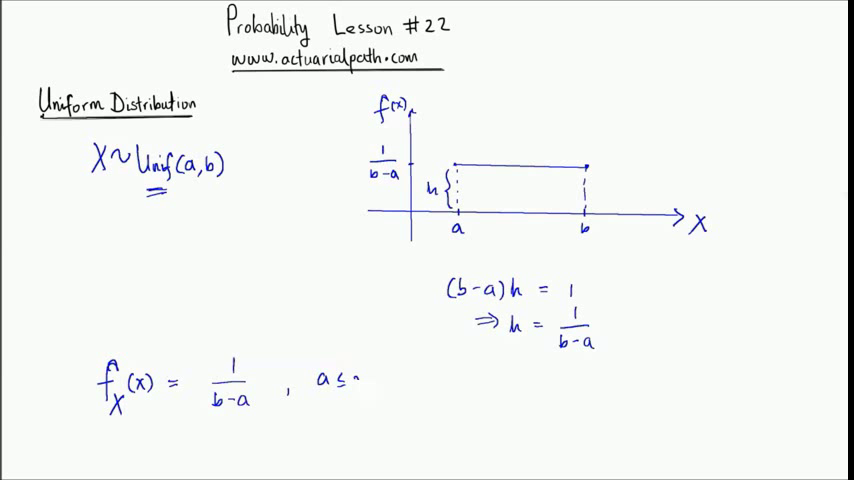 Probability Lesson #22
www.actuarialpath.com
Uniform Distribution
X ~ Unif(a,b)
f(x)
1/(b-a)
h {
a b X
(b-a)h = 1
⇒ h = 1/(b-a)
f_X(x) = 1/(b-a) , a ≤